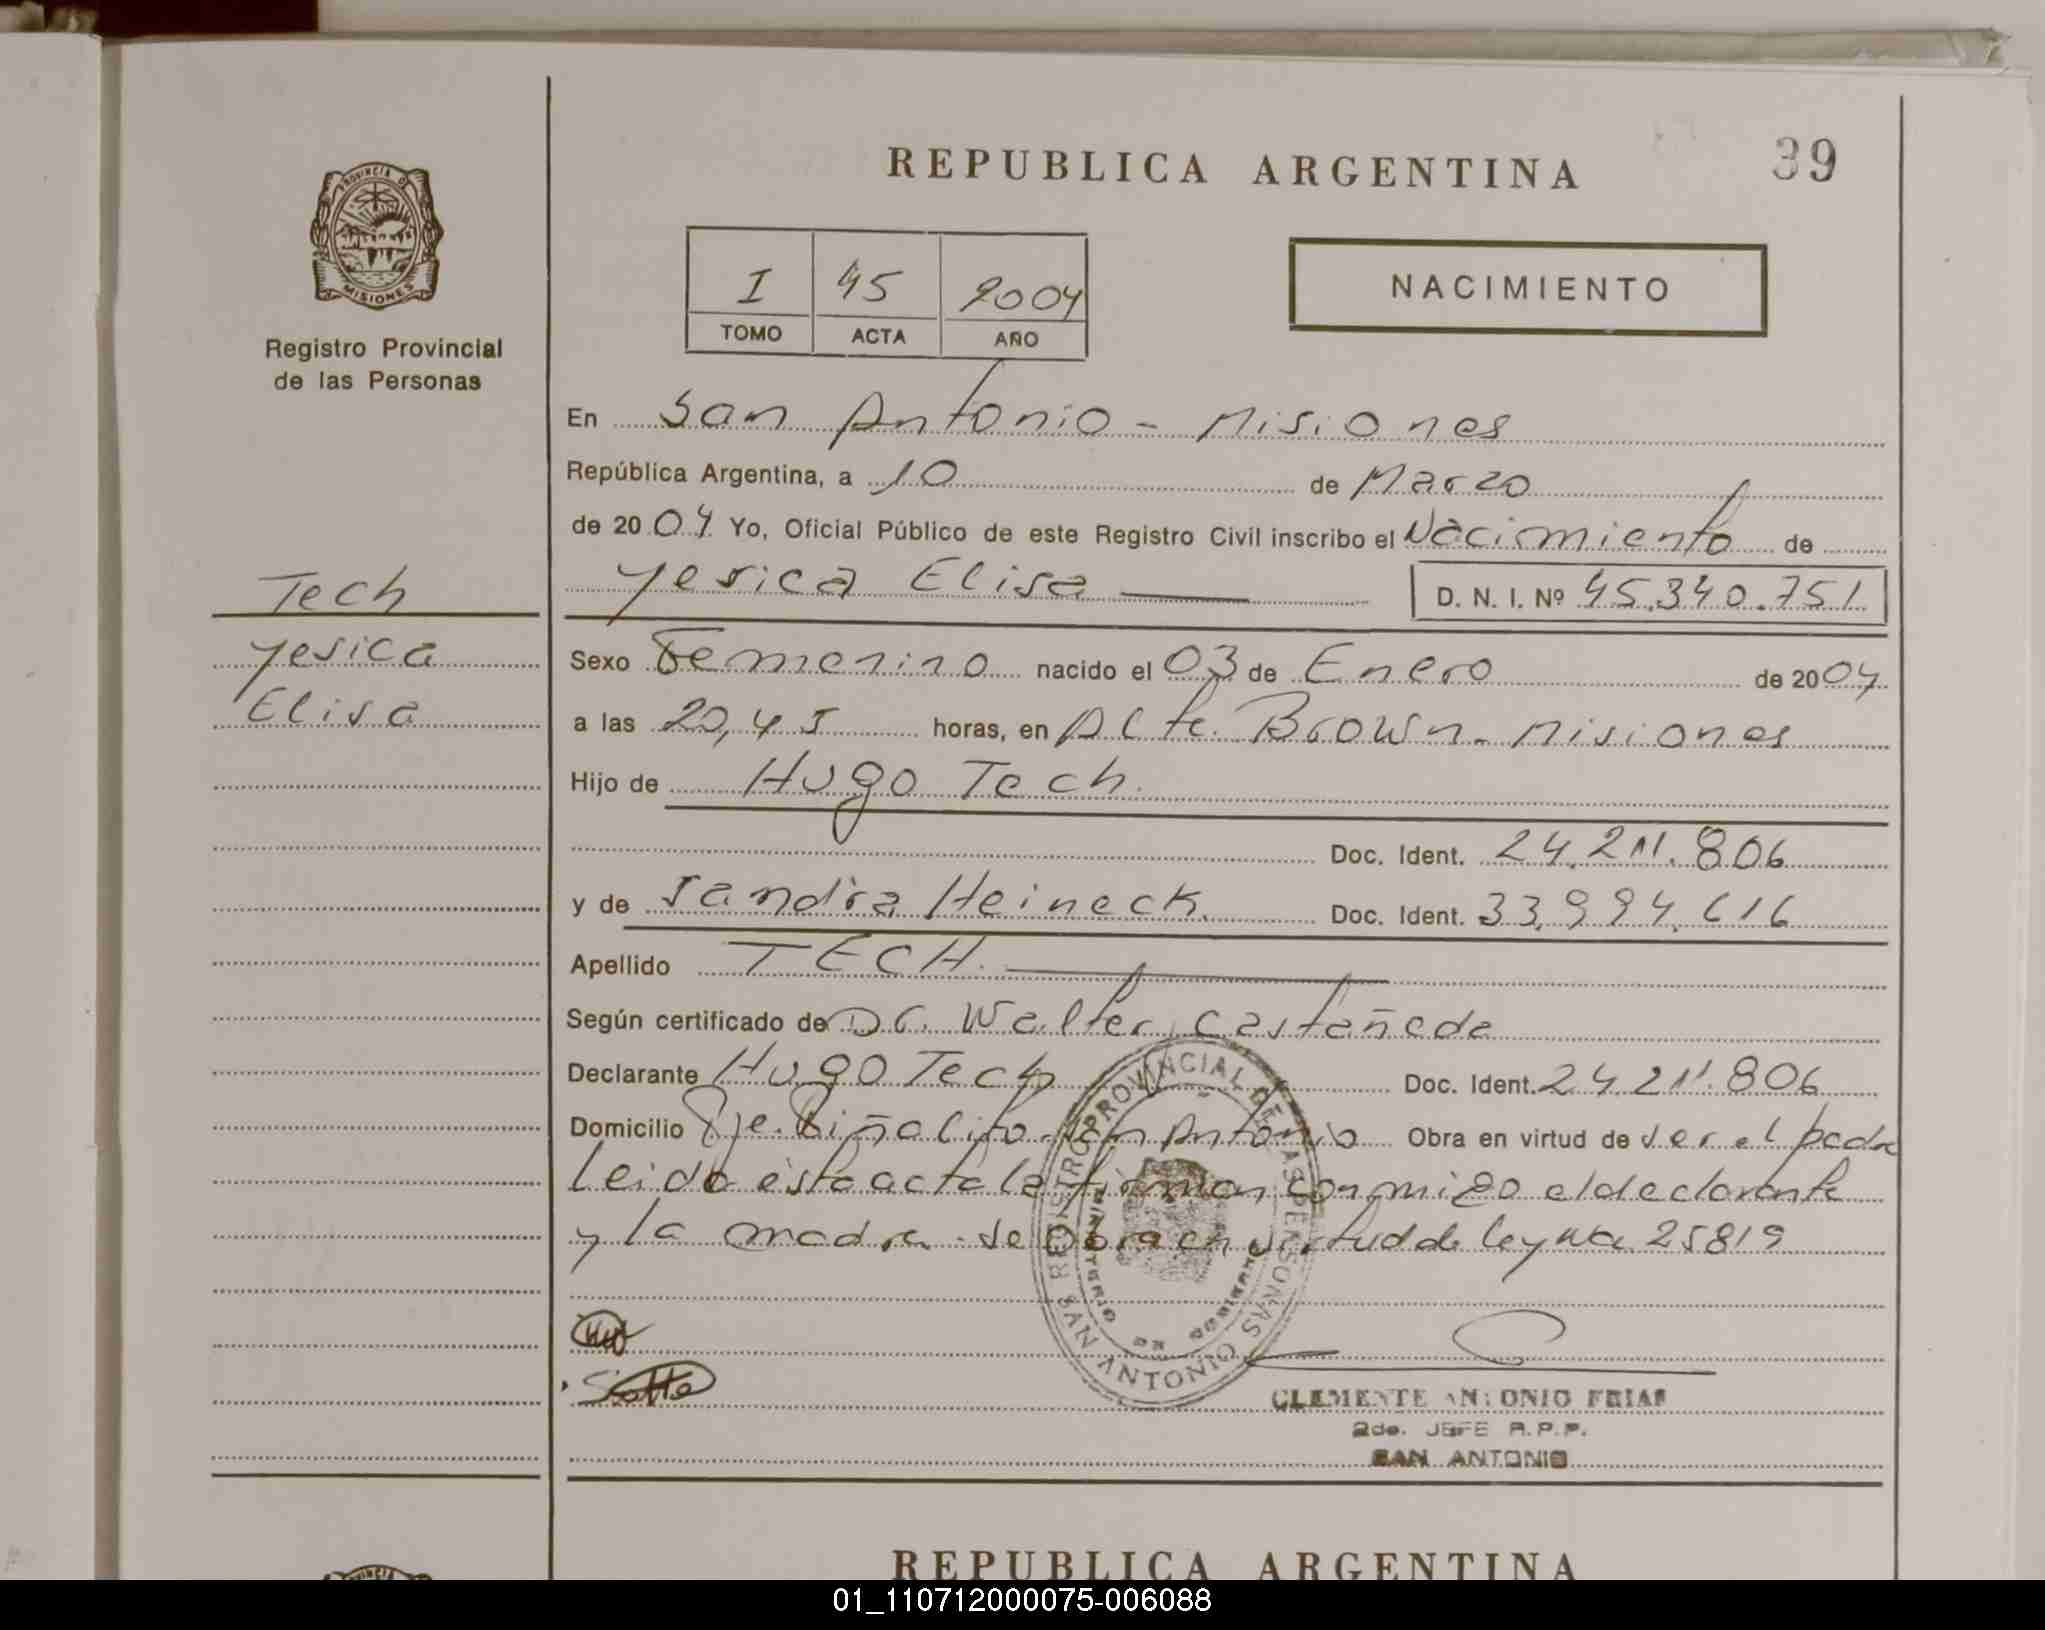 REPUBLICA ARGENTINA
39
PROVINCIA DE
MISIONES
Registro Provincial
de las Personas
I 45 2004
TOMO ACTA AÑO
NACIMIENTO
En San Antonio - Misiones
República Argentina, a 10 de Marzo
de 20 04 Yo, Oficial Público de este Registro Civil inscribo el Nacimiento de
Yesica Elisa D. N. I. Nº 45.340.751
Tech
Yesica
Elisa
Sexo Femenino nacido el 03 de Enero de 2004
a las 20,45 horas, en Alte. Brown - Misiones
Hijo de Hugo Tech.
Doc. Ident. 24.211.806
y de Sandra Heineck. Doc. Ident. 33.994.616
Apellido TECH.
Según certificado de Dr. Walter Castañeda
Declarante Hugo Tech Doc. Ident. 24.211.806
Domicilio Pje. Piñalito - San Antonio Obra en virtud de ser el padre
Leido esta acta la firman conmigo el declarante
y la madre. se obra en virtud de ley Nº 25819
REGISTRO PROVINCIAL DE LAS PERSONAS
MINISTERIO DE GOBIERNO
SAN ANTONIO
CLEMENTE ANTONIO FRIAS
2do. JEFE R.P.P.
SAN ANTONIO
REPUBLICA ARGENTINA
01_110712000075-006088